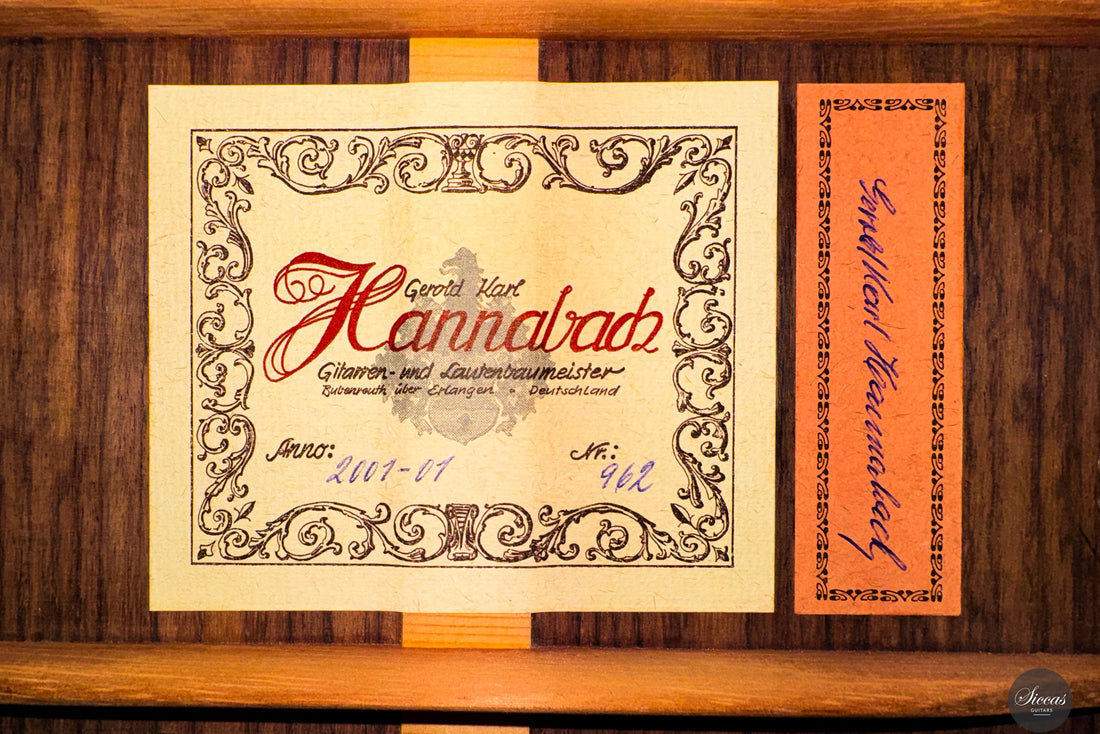 Gerold Karl
Hannabach
Gitarren- und Lautenbaumeister
Bubenreuth über Erlangen - Deutschland
Anno: 2001-01
Nr.: 962
Gerold Karl Hannabach
Siccas
GUITARS